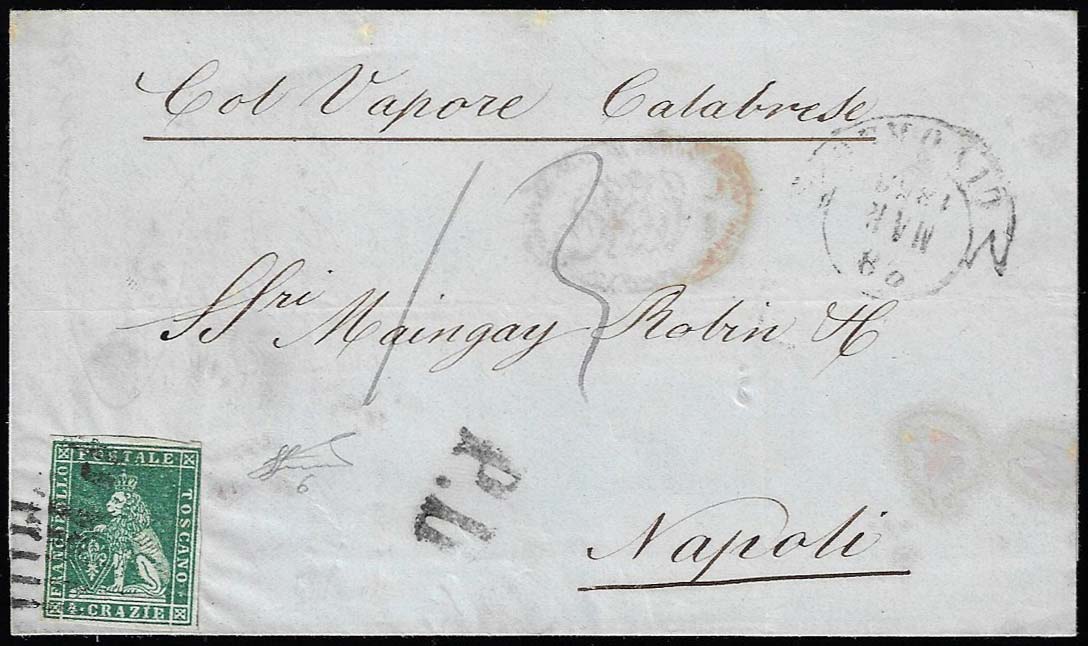 Col Vapore Calabrese
LIVORNO
28
MAR
13
SSri Maingay Robin & C
P.D.
Napoli
FRANCOBOLLO POSTALE TOSCANO
4 CRAZIE
6